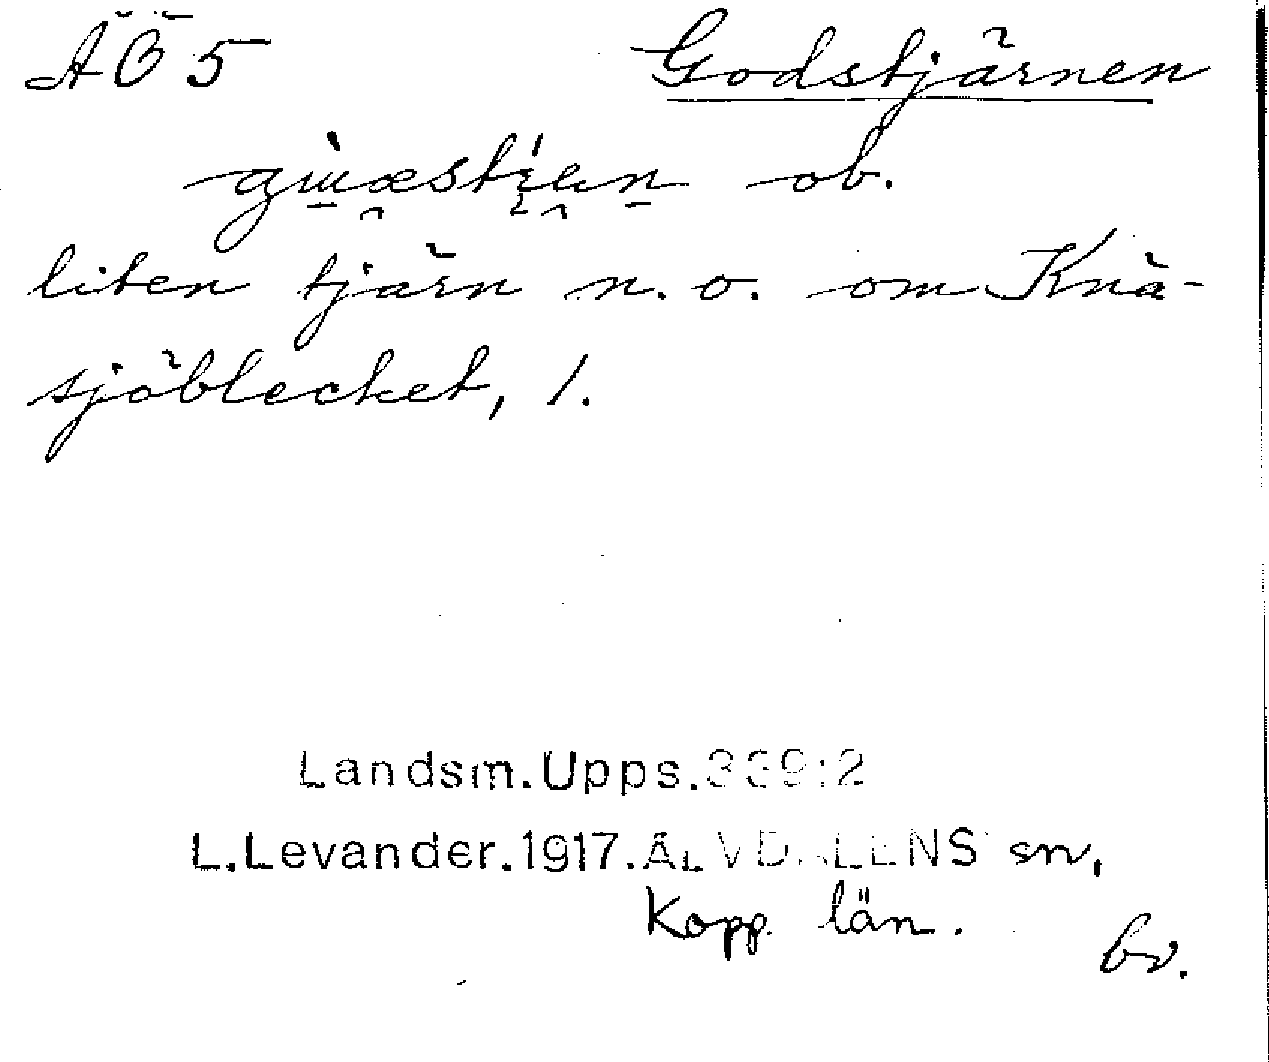 ÄÖ 5 Godstjärnen
ob.
liten tjärn n. o. om Knä-
sjöblecket, 1.
Landsm. Upps. 339:2
L. Levander. 1917. ÄLVDALENS sn,
Kopp. län.
bv.